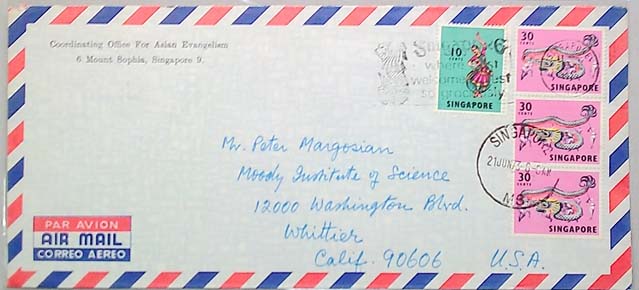 Coordinating Office For Asian Evangelism
6 Mount Sophia, Singapore 9.
10
CENTS
SINGAPORE
30
CENTS
SINGAPORE
30
CENTS
SINGAPORE
30
CENTS
SINGAPORE
where East
welcomes West
so graciously
SINGAPORE
21 JUN 73
Mr. Peter Margosian
Moody Institute of Science
12000 Washington Blvd.
Whittier
Calif. 90606 U.S.A.
PAR AVION
AIR MAIL
CORREO AEREO